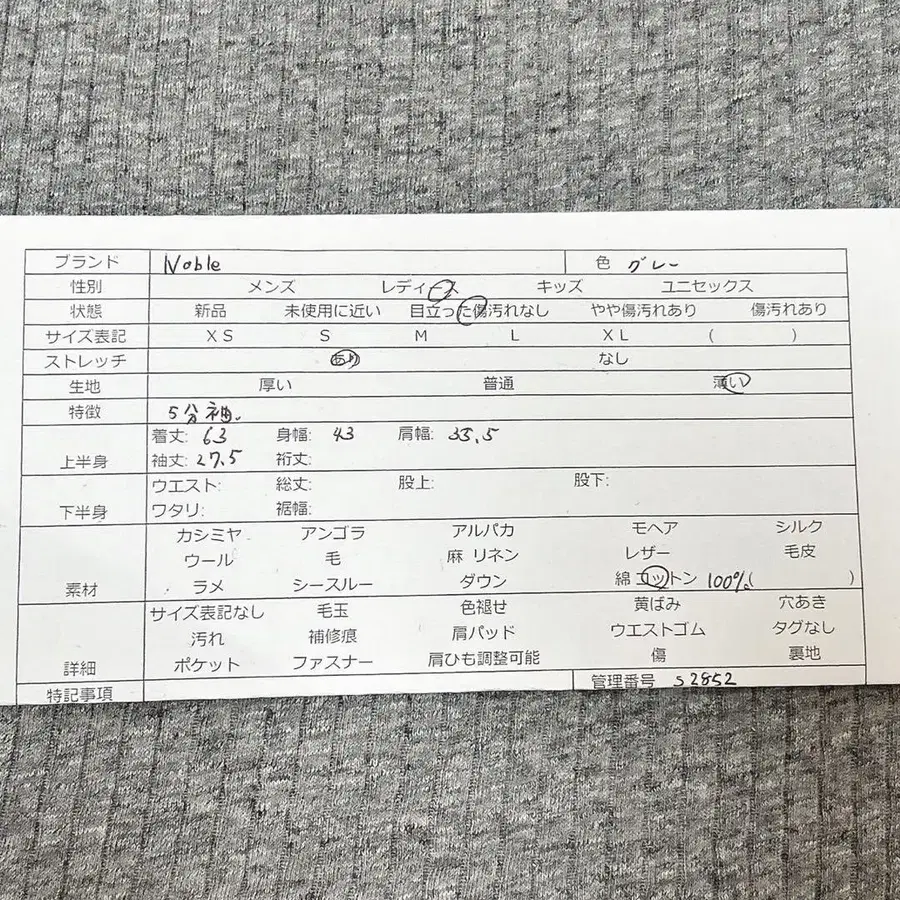 ブランド Noble 色 グレー
性別 メンズ レディース キッズ ユニセックス
状態 新品 未使用に近い 目立った傷汚れなし やや傷汚れあり 傷汚れあり
サイズ表記 XS S M L XL ( )
ストレッチ あり なし
生地 厚い 普通 薄い
特徴 5分袖.
着丈: 63 身幅: 43 肩幅: 35.5
上半身 袖丈: 27.5 裄丈:
ウエスト: 総丈: 股上: 股下:
下半身 ワタリ: 裾幅:
カシミヤ アンゴラ アルパカ モヘア シルク
ウール 毛 麻 リネン レザー 毛皮
素材 ラメ シースルー ダウン 綿 コットン 100% ( )
サイズ表記なし 毛玉 色褪せ 黄ばみ 穴あき
汚れ 補修痕 肩パッド ウエストゴム タグなし
詳細 ポケット ファスナー 肩ひも調整可能 傷 裏地
特記事項 管理番号 s2852